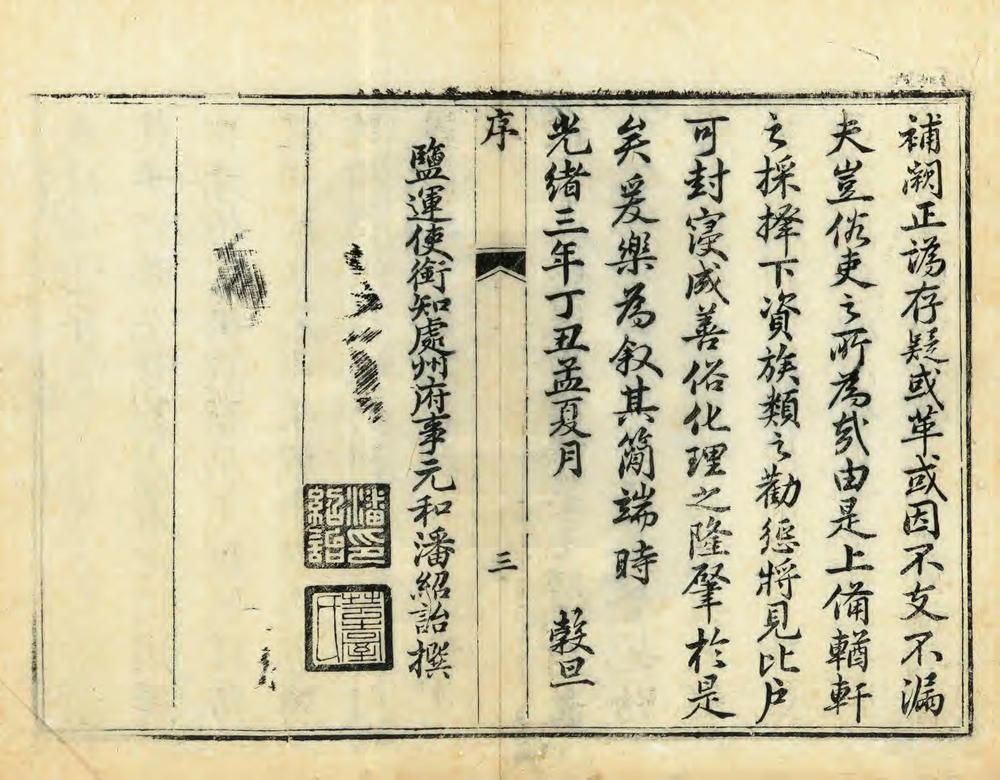 補闕正譌存疑或革或因不支不漏
夫豈俗吏之所為哉由是上備輶軒
之採擇下資族類之勸懲將見比户
可封寖成善俗化理之隆肇於是
矣爰樂為叙其簡端時
光緒三年丁丑孟夏月 穀旦
序 三
鹽運使銜知處州府事元和潘紹詒撰
潘印紹詒